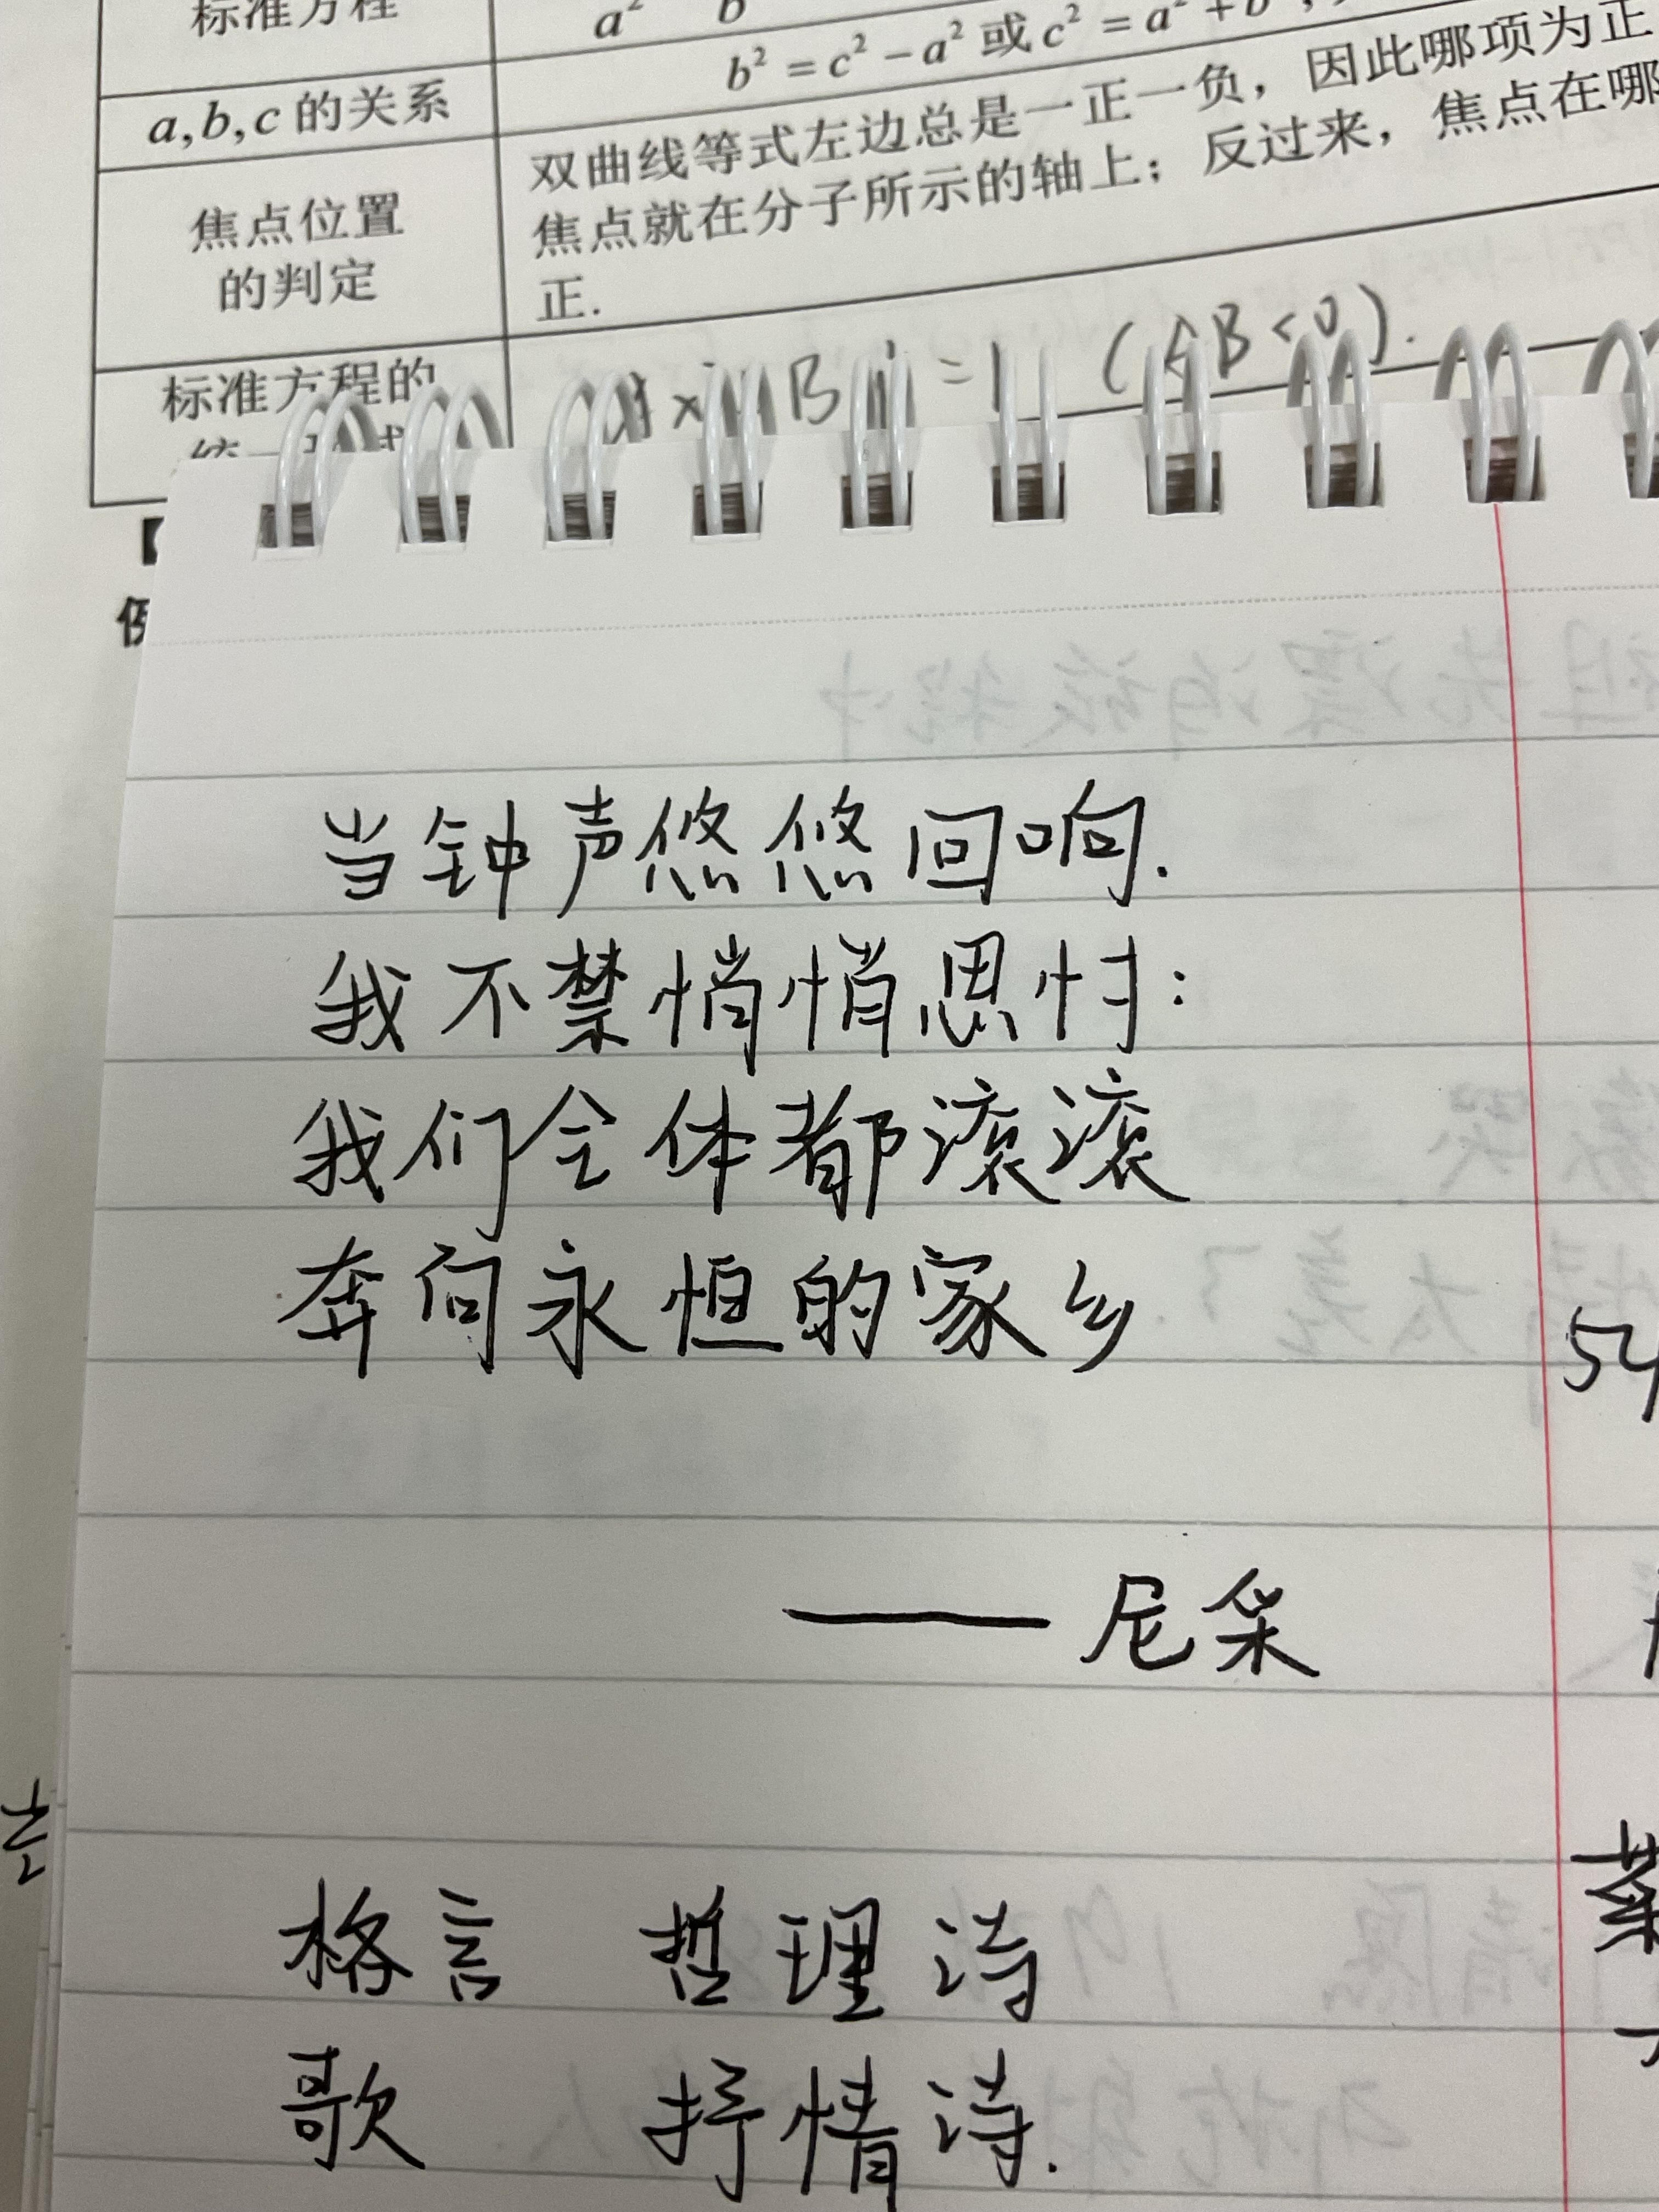 标准方程
a² b
a,b,c的关系
b²=c²-a²或c²=a²+b
焦点位置
的判定
双曲线等式左边总是一正一负，因此哪项为正
焦点就在分子所示的轴上；反过来，焦点在哪
正.
=1 (AB<0).
标准方程的
当钟声悠悠回响.
我不禁悄悄思忖:
我们全体都滚滚
奔向永恒的家乡
——尼采
格言 哲理诗
歌 抒情诗.